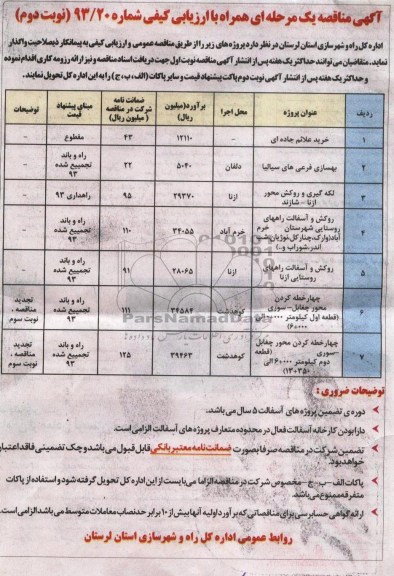 آگهی مناقصه یک مرحله ای همراه با ارزیابی کیفی شماره ۹۳/۲۰ (نوبت دوم)
اداره کل راه و شهرسازی استان لرستان در نظر دارد پروژه های زیر را از طریق مناقصه عمومی و ارزیابی کیفی به پیمانکار ذیصلاحیت واگذار
نماید. متقاضیان می توانند حداکثر یک هفته پس از انتشار آگهی مناقصه نوبت اول جهت دریافت اسناد مناقصه و نیز ارائه رزومه کاری اقدام نموده
و حداکثر یک هفته پس از انتشار آگهی نوبت دوم پاکت پیشنهاد قیمت و سایر پاکات (الف، ب، ج) را به این اداره کل تحویل نمایند.
ردیف | عنوان پروژه | محل اجرا | برآورد (میلیون ریال) | ضمانت نامه شرکت در مناقصه (میلیون ریال) | مبنای پیشنهاد قیمت | توضیحات
۱ | خرید علائم جاده ای | - | ۱۲۱۱۰ | ۴۳ | مقطوع
۲ | بهسازی فرعی های سیالیا | دلفان | ۵۰۴۰ | ۲۲ | راه و باند تجمیع شده ۹۳
۳ | لکه گیری و روکش محور ازنا - شازند | ازنا | ۲۹۳۷۰ | ۹۵ | راهداری ۹۳
۴ | روکش و آسفالت راههای روستایی شهرستان خرم آباد | خرم آباد | ۳۴۰۵۵ | ۱۱۰ | راه و باند تجمیع شده ۹۳
۵ | روکش و آسفالت راههای روستایی ازنا | ازنا | ۲۸۰۶۵ | ۹۱ | راه و باند تجمیع شده ۹۳
۶ | چهارخطه کردن محور چغابل-سوری (قطعه اول کیلومتر ۰۰۰+۰ الی ۶۰۰۰۰) | کوهدشت | ۳۴۵۸۴ | ۱۱۱ | راه و باند تجمیع شده ۹۳ | تجدید مناقصه، نوبت سوم
۷ | چهارخطه کردن محور چغابل-سوری (قطعه دوم کیلومتر ۶۰۰۰۰ الی ۱۳۰۳۵۰) | کوهدشت | ۳۹۴۶۳ | ۱۲۵ | راه و باند تجمیع شده ۹۳ | تجدید مناقصه، نوبت سوم
ParsNamadData
توضیحات ضروری:
دوره ی تضمین پروژه های آسفالت ۵ سال می باشد.
دارا بودن کارخانه آسفالت فعال در محدوده متعارف پروژه های آسفالت الزامی است.
تضمین شرکت در مناقصه صرفا بصورت ضمانت نامه معتبر بانکی قابل قبول می باشد و چک تضمینی فاقد اعتبار
خواهد بود.
پاکات الف-ب-ج- مخصوص شرکت در مناقصه الزاما می بایست از این اداره کل تحویل گرفته شود و استفاده از پاکات
متفرقه ممنوع می باشد.
ارائه گواهی حسابرسی برای مناقصاتی که برآورد اولیه آنها بیش از ۱۰ برابر حد نصاب معاملات متوسط می باشد الزامی است.
روابط عمومی اداره کل راه و شهرسازی استان لرستان